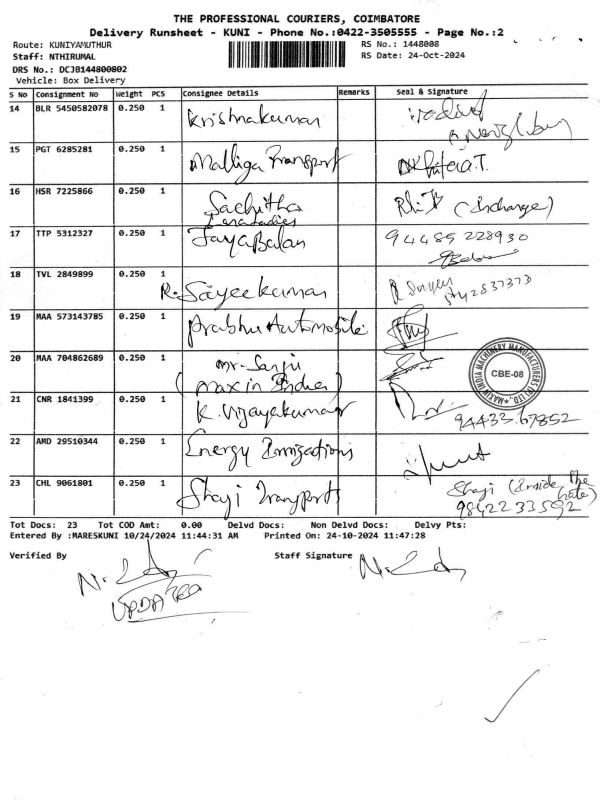 THE PROFESSIONAL COURIERS, COIMBATORE
Delivery Runsheet - KUNI - Phone No.:0422-3505555 - Page No.:2
Route: KUNIYAMUTHUR RS No.: 1448008
Staff: NTHIRUMAL RS Date: 24-Oct-2024
DRS No.: DCJB144800802
Vehicle: Box Delivery
S No Consignment No Weight PCS Consignee Details Remarks Seal & Signature
14 BLR 5450582078 0.250 1 Krishnakumar
15 PGT 6285281 0.250 1 Malliga Transport
16 HSR 7225866 0.250 1 Sachitha
17 TTP 5312327 0.250 1 JayaBalan 94485228930
18 TVL 2849899 0.250 1 R. Sayeekumar
19 MAA 573143785 0.250 1 Prabhu Automobile
20 MAA 704862689 0.250 1 mr. Sanju
(maxin India) CBE-08
21 CNR 1841399 0.250 1 K. Vijayakumar 94433 67852
22 AMD 29510344 0.250 1 Energy
23 CHL 9061801 0.250 1 Shaji Transports Shaji (Inside The Gate)
98422 33592
Tot Docs: 23 Tot COD Amt: 0.00 Delvd Docs: Non Delvd Docs: Delvy Pts:
Entered By :MARESKUNI 10/24/2024 11:44:31 AM Printed On: 24-10-2024 11:47:28
Verified By Staff Signature
UPDATED